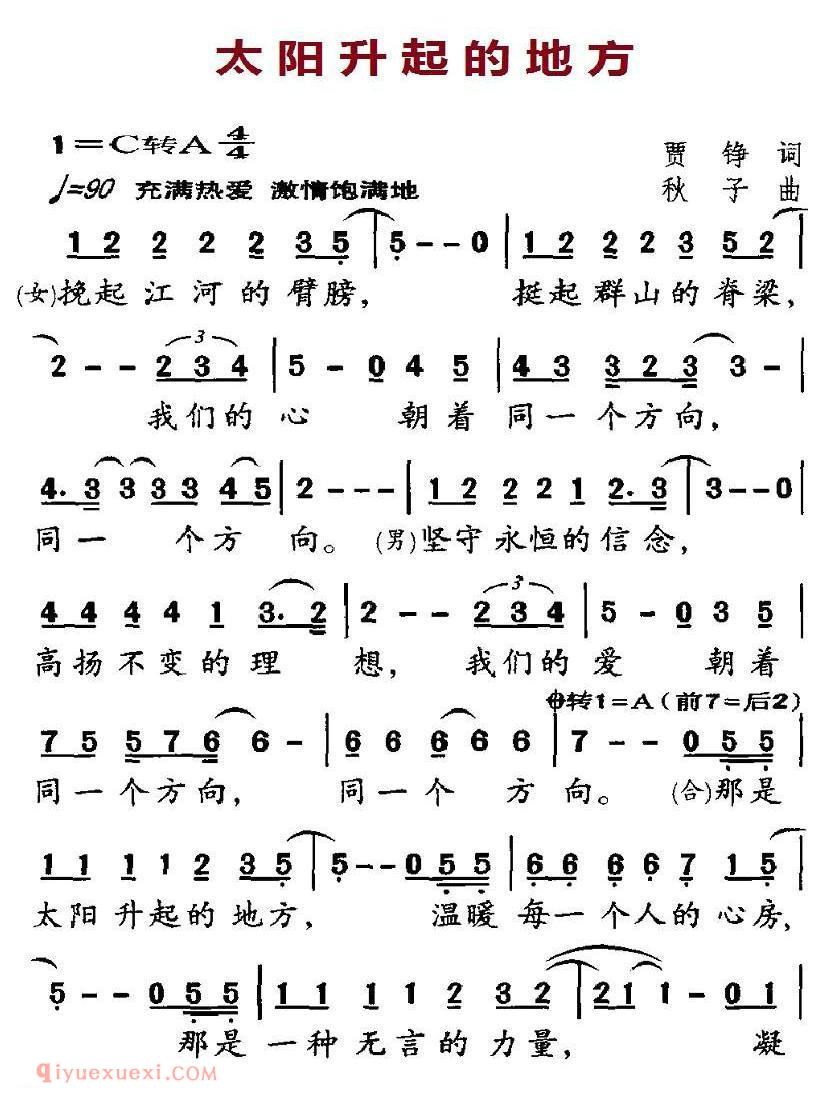 太阳升起的地方
1=C转A 4/4
贾铮词
♩=90 充满热爱 激情饱满地
秋子曲
1 2 2 2 2 3 5 | 5 - - 0 | 1 2 2 2 3 5 2 |
(女)挽起江河的臂膀, 挺起群山的脊梁,
2 - - 2 3 4 | 5 - 0 4 5 | 4 3 3 2 3 3 - |
我们的心 朝着同一个方向,
4. 3 3 3 3 4 5 | 2 - - - | 1 2 2 2 2 1 2. 3 | 3 - - 0
同一 个方 向。 (男)坚守永恒的信念,
4 4 4 4 1 3. 2 | 2 - - 2 3 4 | 5 - 0 3 5 |
高扬不变的理 想, 我们的爱 朝着
转1=A(前7=后2)
7 5 5 7 6 6 - | 6 6 6 6 6 6 | 7 - - 0 5 5 |
同一个方向, 同一个 方向。 (合)那是
1 1 1 1 2 3 5 | 5 - - 0 5 5 | 6 6 6 6 7 1 5 |
太阳升起的地方, 温暖每一个人的心房,
5 - - 0 5 5 | 1 1 1 1 2 3 2 | 2 1 1 - 0 1 |
那是一种无言的力量, 凝
qiyuexuexi.com